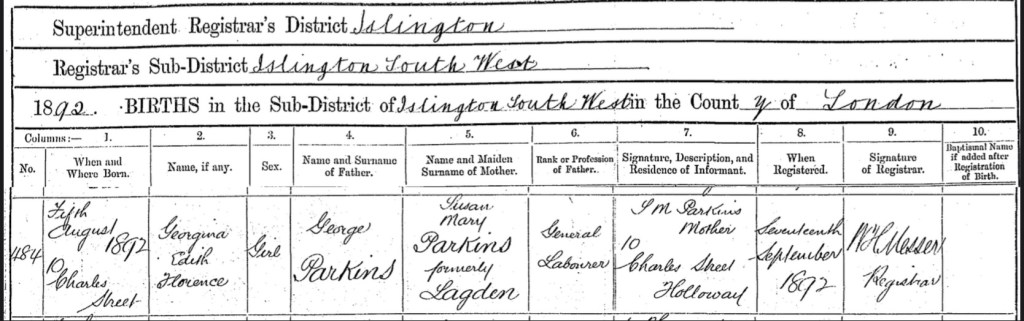 Superintendent Registrar's District Islington
Registrar's Sub-District Islington South West
1892. BIRTHS in the Sub-District of Islington South West in the County of London
Columns:— 1. 2. 3. 4. 5. 6. 7. 8. 9. 10.
No.
When and
Where Born.
Name, if any.
Sex.
Name and Surname
of Father.
Name and Maiden
Surname of Mother.
Rank or Profession
of Father.
Signature, Description, and
Residence of Informant.
When
Registered.
Signature
of Registrar.
Baptismal Name
if added after
Registration
of Birth.
484
Fifth
August
1892
10
Charles
Street
Georgina
Edith
Florence
Girl
George
Parkins
Susan
Mary
Parkins
formerly
Lagden
General
Labourer
S M Parkins
Mother
10
Charles Street
Holloway
Seventeenth
September
1892
Messer
Registrar